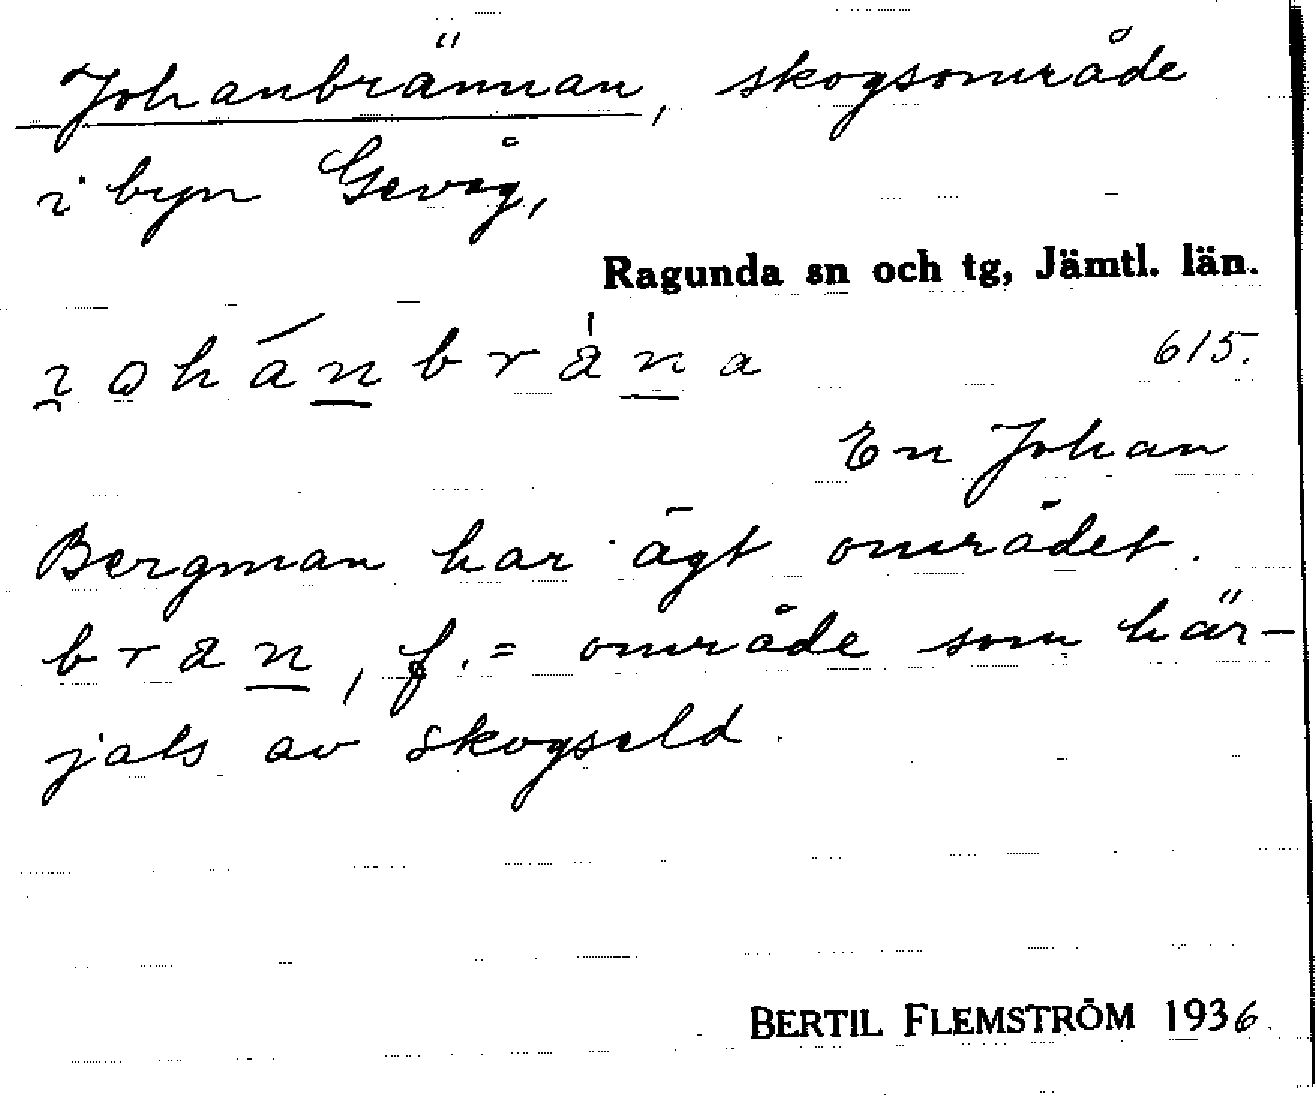 Johanbrännan, skogsområde
i byn Gevåg,
Ragunda sn och tg, Jämtl. län.
615.
En Johan
Bergman har ägt området.
bran, f. = område som här-
jats av skogseld.
BERTIL FLEMSTRÖM 1936